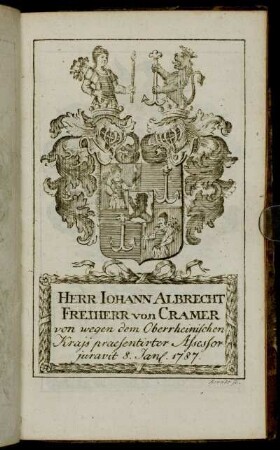 HERR IOHANN ALBRECHT
FREIHERR von CRAMER
von wegen dem Oberrheinischen
Kraiß praesentirter Aſseſsor
juravit 8. Janſ. 1787.